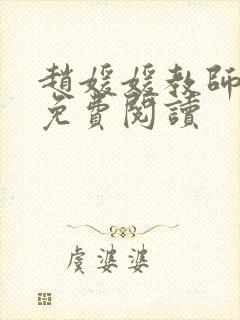 趙媛媛教師
免費閱讀
虞婆婆